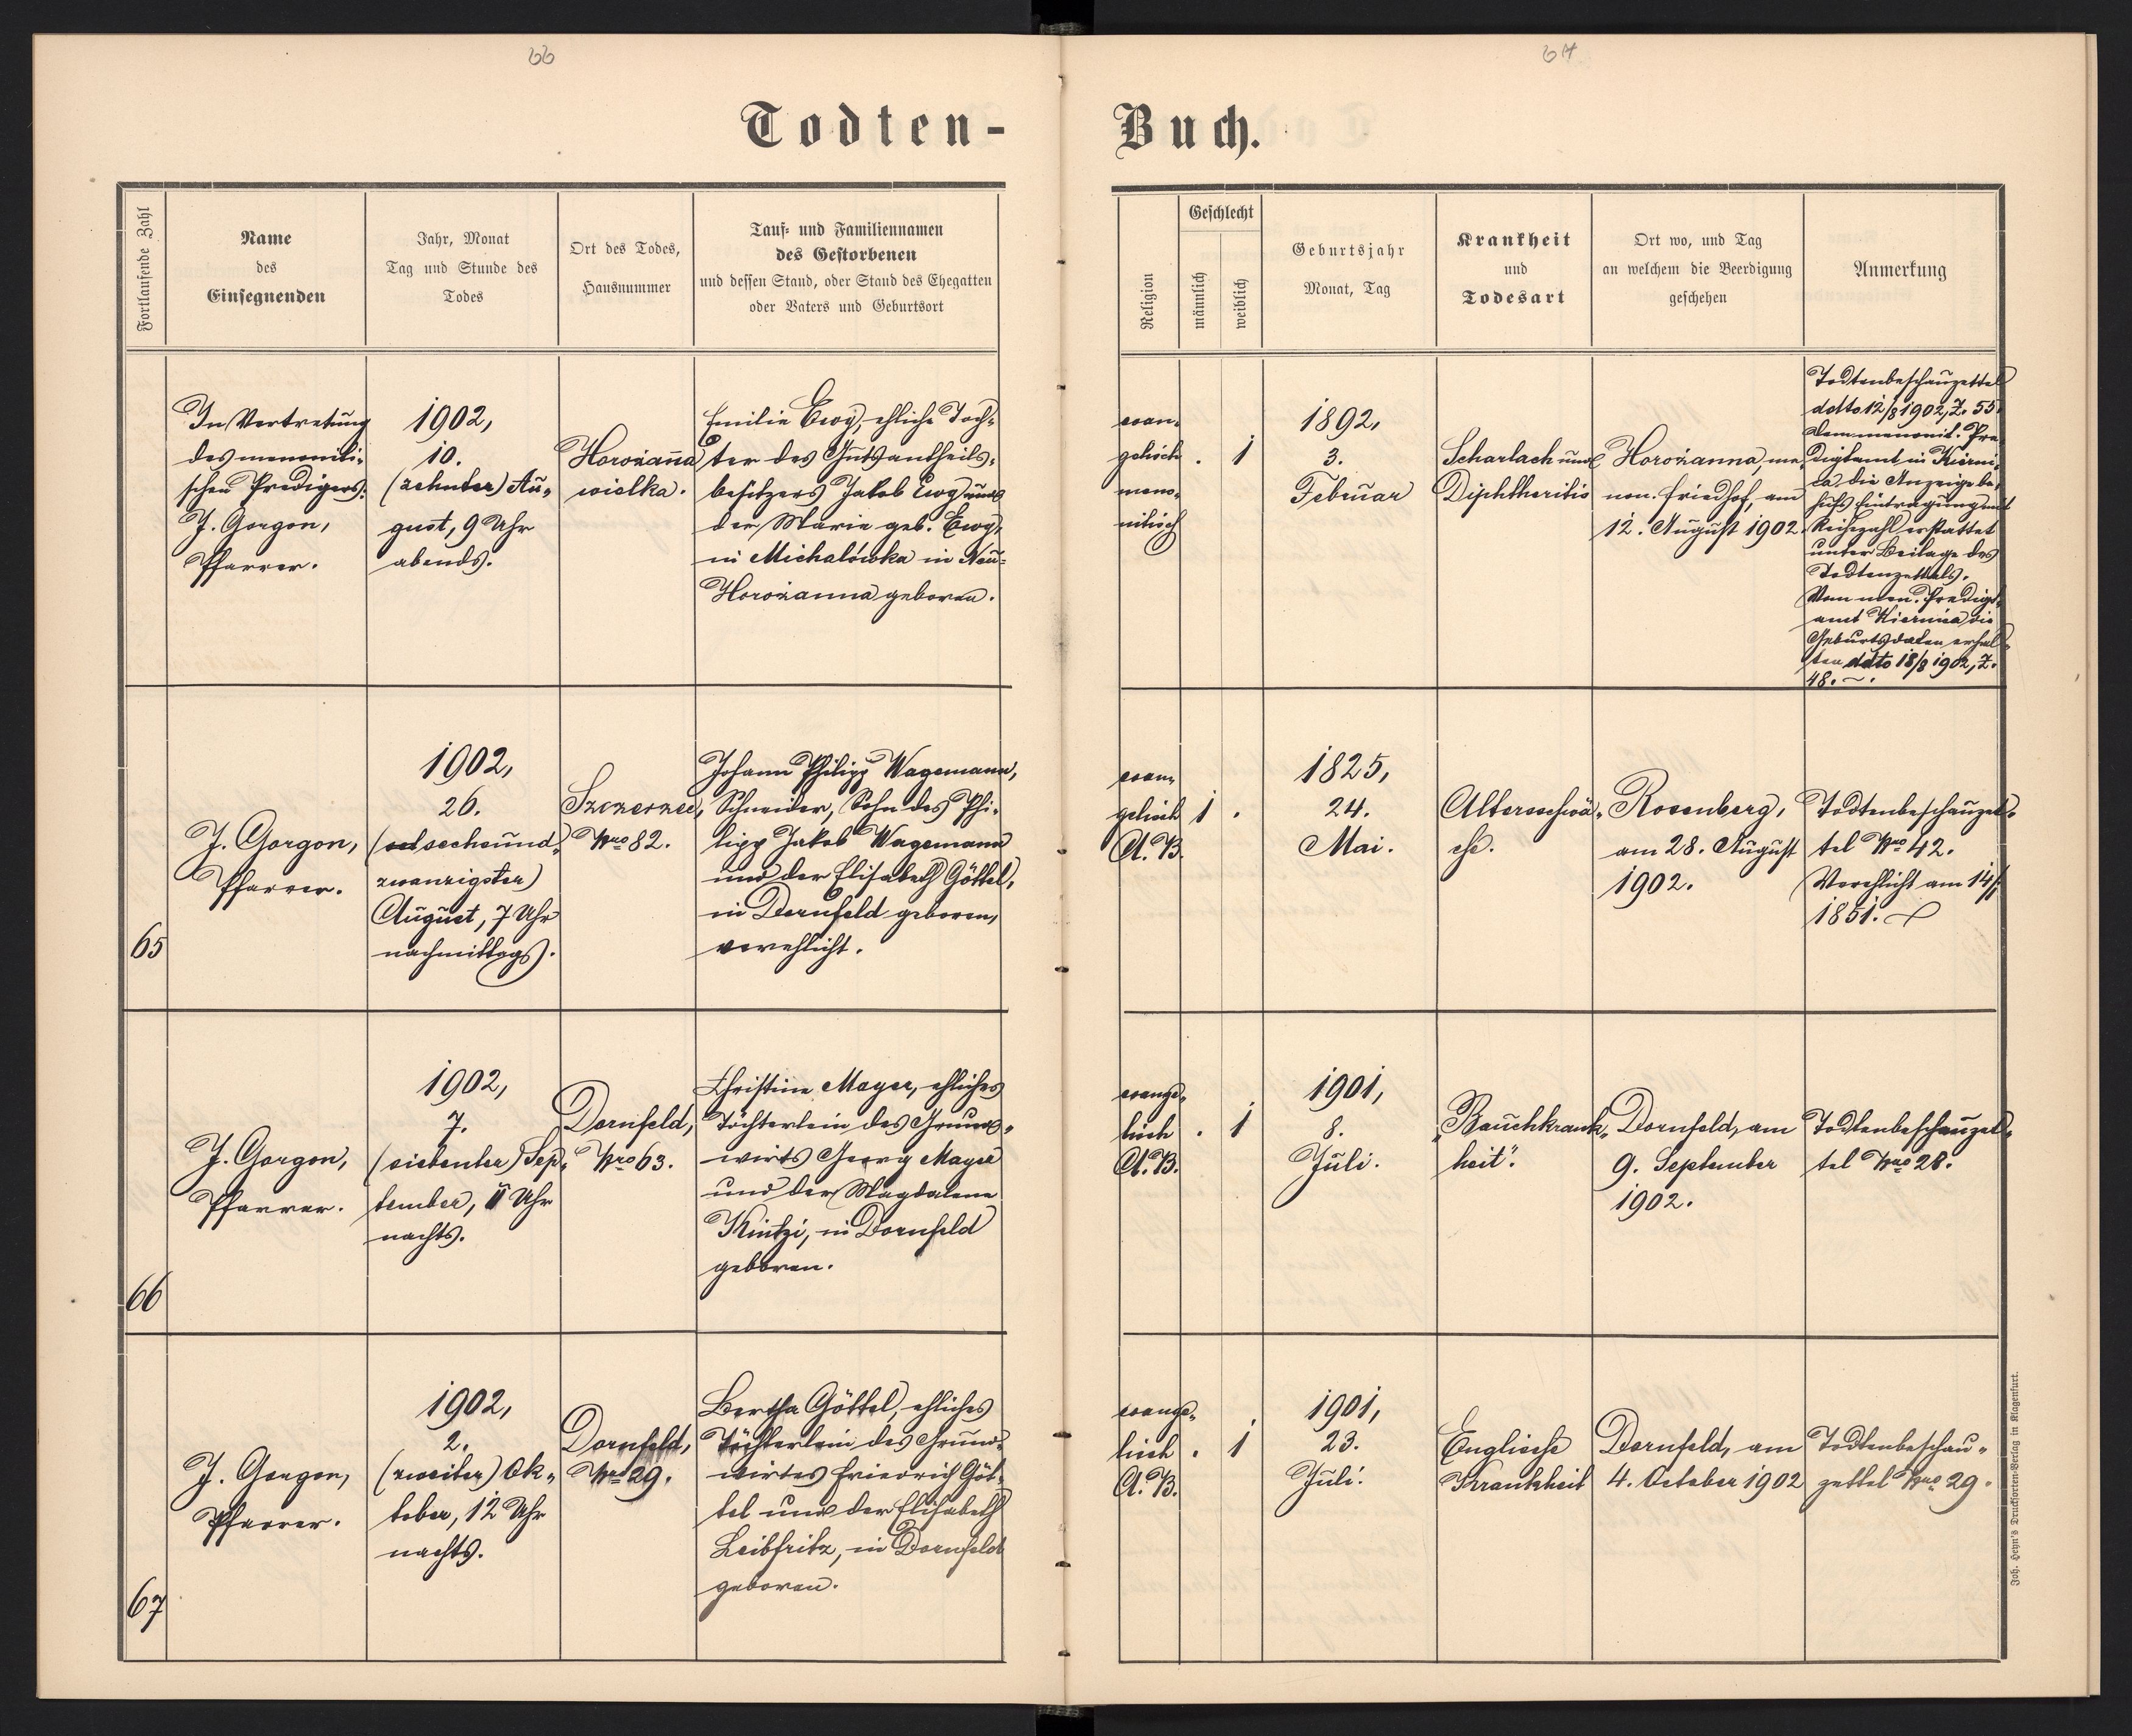 66
67
Todten-
Buch.
Fortlaufende Zahl
Name
des
Einsegnenden
Jahr, Monat
Tag und Stunde des
Todes
Ort des Todes,
Hausnummer
Tauf- und Familiennamen
des Gestorbenen
und dessen Stand, oder Stand des Ehegatten
oder Vaters und Geburtsort
Religion
Geschlecht
männlich
weiblich
Geburtsjahr
Monat, Tag
Krankheit
und
Todesart
Ort wo, und Tag
an welchem die Beerdigung
geschehen
Anmerkung
In Vertretung
des mennoniti-
schen Predigers:
J. Gorgon,
Pfarrer.
1902,
10.
(zehnter) Au-
gust, 9 Uhr
abends.
Horożanna
wielka.
Emilie Ewy, ehliche Toch-
ter des Gutsantheils-
besitzers Jakob Ewy und
der Marie geb. Ewy,
in Michalówka in Neu-
Horożanna geboren.
evan-
gelisch
meno-
nitisch
.
1
1892,
3.
Februar
Scharlach und
Diphtheritis
Horożanna, me-
non. Friedhof, am
12. August 1902.
Todtenbeschauzettel
ddto 12/8 1902, Z. 55.
Dem menonit. Pre-
digtamt in Kierni-
ca die Anzeige be-
hufs Eintragung mit
Reihezahl erstattet
unter Beilage des
Todtenzettels.
Vom men. Predigt-
amt Kiernica die
Geburtsdaten erhal-
ten ddto 18/8 1902, Z.
48.
65
J. Gorgon,
Pfarrer.
1902,
26.
(sechsund-
zwanzigster)
August, 7 Uhr
nachmittags).
Szczerzec,
Nro 82.
Johann Philipp Wagemann,
Schneider, Sohn des Phi-
lipp Jakob Wagemann
und der Elisabeth Göttel,
in Dornfeld geboren,
verehlicht.
evan-
gelisch
A. B.
1
.
1825,
24.
Mai.
Altersschwä-
che.
Rosenberg,
am 28. August
1902.
Todtenbeschauzet-
tel Nro 42.
Verehlicht am 14/
1851.
66
J. Gorgon,
Pfarrer.
1902,
7.
(siebenter) Sep-
tember, 11 Uhr
nachts.
Dornfeld,
Nro 63.
Christine Mayer, ehliches
Töchterlein des Grund-
wirts Georg Mayer
und der Magdalena
Kintzi, in Dornfeld
geboren.
evange-
lisch
A. B.
.
1
1901,
8.
Juli.
„Bauchkrank-
heit“.
Dornfeld, am
9. September
1902.
Todtenbeschauzet-
tel Nro 28.
67
J. Gorgon,
Pfarrer.
1902,
2.
(zweiter) Ok-
tober, 12 Uhr
nachts.
Dornfeld,
Nro 29.
Bertha Göttel, ehliches
Töchterlein des Grund-
wirtes Friedrich Göt-
tel und der Elisabeth
Leibfritz, in Dornfeld
geboren.
evange-
lisch
A. B.
.
1
1901,
23.
Juli.
Englische
Krankheit
Dornfeld, am
4. October 1902
Todtenbeschau-
zettel Nro 29.
Joh. Heyn's Drucksorten-Verlag in Klagenfurt.